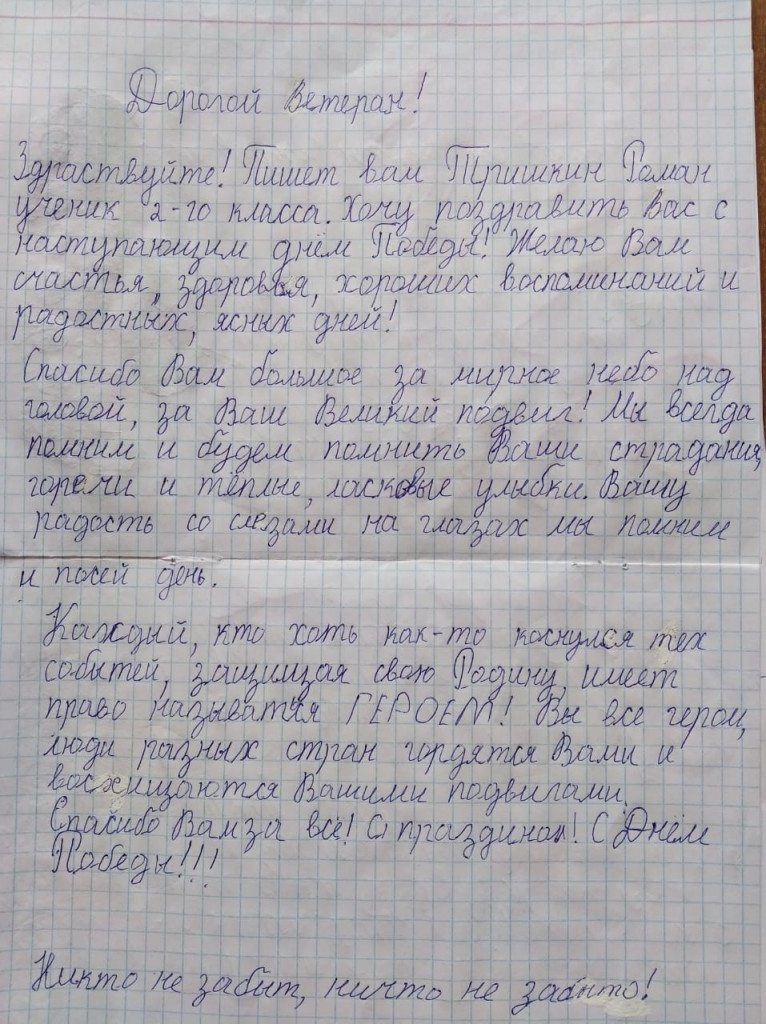 Дорогой ветеран!
Здраствуйте! Пишет вам Тришкин Роман
ученик 2-го класса. Хочу поздравить Вас с
наступающим днём Победы! Желаю Вам
счастья, здоровья, хороших воспоминаний и
радостных, ясных дней!
Спасибо Вам большое за мирное небо над
головой, за Ваш Великий подвиг! Мы всегда
помним и будем помнить Ваши страдания,
горечи и тёплые, ласковые улыбки. Вашу
радость со слезами на глазах мы помним
и посей день.
Каждый, кто хоть как-то коснулся тех
событей, защищая свою Родину, имеет
право называтся ГЕРОЕМ! Вы все герои,
люди разных стран гордятся Вами и
восхищаются Вашими подвигами.
Спасибо Вам за всё! С праздником! С Днём
Победы!!!
Никто не забыт, ничто не забыто!